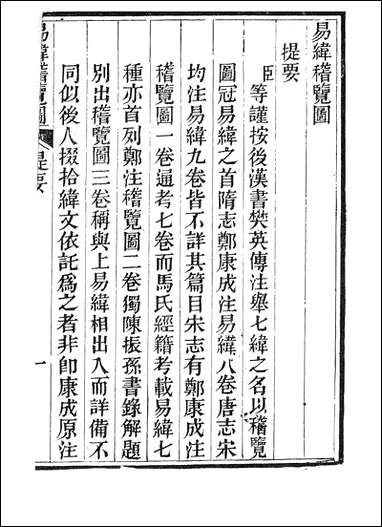 易緯稽覽圖
提要
臣等謹按後漢書樊英傳注舉七緯之名以稽覽
圖冠易緯之首隋志鄭康成注易緯八卷唐志宋
均注易緯九卷皆不詳其篇目宋志有鄭康成注
稽覽圖一卷通考七卷而馬氏經籍考載易緯七
種亦首列鄭注稽覽圖二卷獨陳振孫書錄解題
別出稽覽圖三卷稱與上易緯相出入而詳備不
同似後人掇拾緯文依託爲之者非卽康成原注
易緯稽覽圖 提要 一